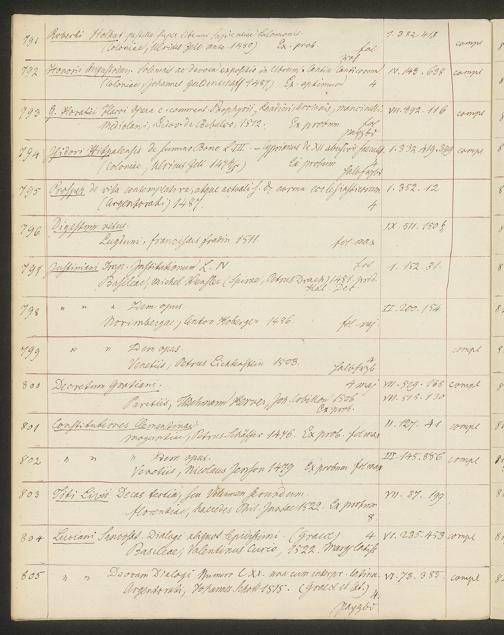 791 Roberti Holkot super librum Sapientiae Salomonis 1.382.418
(Coloniae, Ulrich Zell ante 1480) Ex. prob. fol compl
maj
792 Honorii Augustodun. Solemnis ac devota expositio in librum Cantici Canticorum IV.143.638 compl
(Coloniae, Johannes Guldenschaff 1487) Ex optimum 4
793 Q. Horatii Flacci opera c. comment. Porphyrii, Landini VII.992.116 compl
Mediolani, 1512. Ex probum fol
794 Isidori Hispalensis de summo Bono L. III. 1.332
(Coloniae, Ulrius Zell Ex probum
795 Prosper de vita contemplativa, atque actuali s. de norma ecclesiasticorum 1.352.12
(Argentorati) 1487. 4
796 Digestum vetus. IX.511.150
Lugduni, franciscus fradin 1511 fol max
797 Justiniani Imp. Institutionum L. IV fol 1.152.31
Basileae, Michel Wenssler (Spirae, Petrus Drach) 1481.
798 " " " Idem opus II.200.154
Norimbergae, Anton Koberger 1486 fol maj
799 " " Idem opus compl
Venetiis, Petrus Lichtenstein 1503. 4
800 Decretum Gratiani. 4 maj VII.509.168 compl
Parisiis, Thielmann Kerver, Joh. 1506 VII.515.130
Ex prob.
801 Constitutiones Clementinae II.127.41 compl
Moguntiae, Petrus Schöffer 1476. Ex prob. fol max
802 " " " Idem opus. III.145.886 compl
Venetiis, Nicolaus Jenson 1479 Ex probum fol max
803 Titi Livii Decas tertia, seu Volumen secundum VII.37.199
florentiae, haeredes Phil. Juntae 1522. Ex probum
8
804 Luciani Samosat. Dialogi aliquot (Graece) 4 VI.235.453 compl
Basileae, Valentinus Curio, 1522.
805 " " Deorum Dialogi Numero LXX. una cum interpr. latina VI.73.385 compl
Argentorati, Johannes Schott 1515. (Graece et lat.) 4